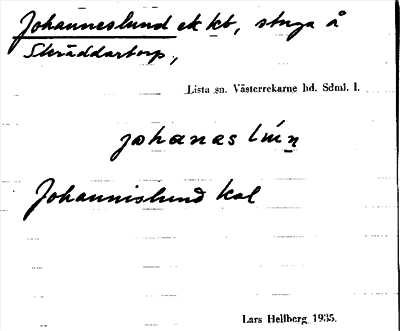 Johanneslund ek kt, stuga å
Skräddartorp,
Lista sn. Västerrekarne hd. Sdml. l.
johanas
Johannislund kal
Lars Hellberg 1935.